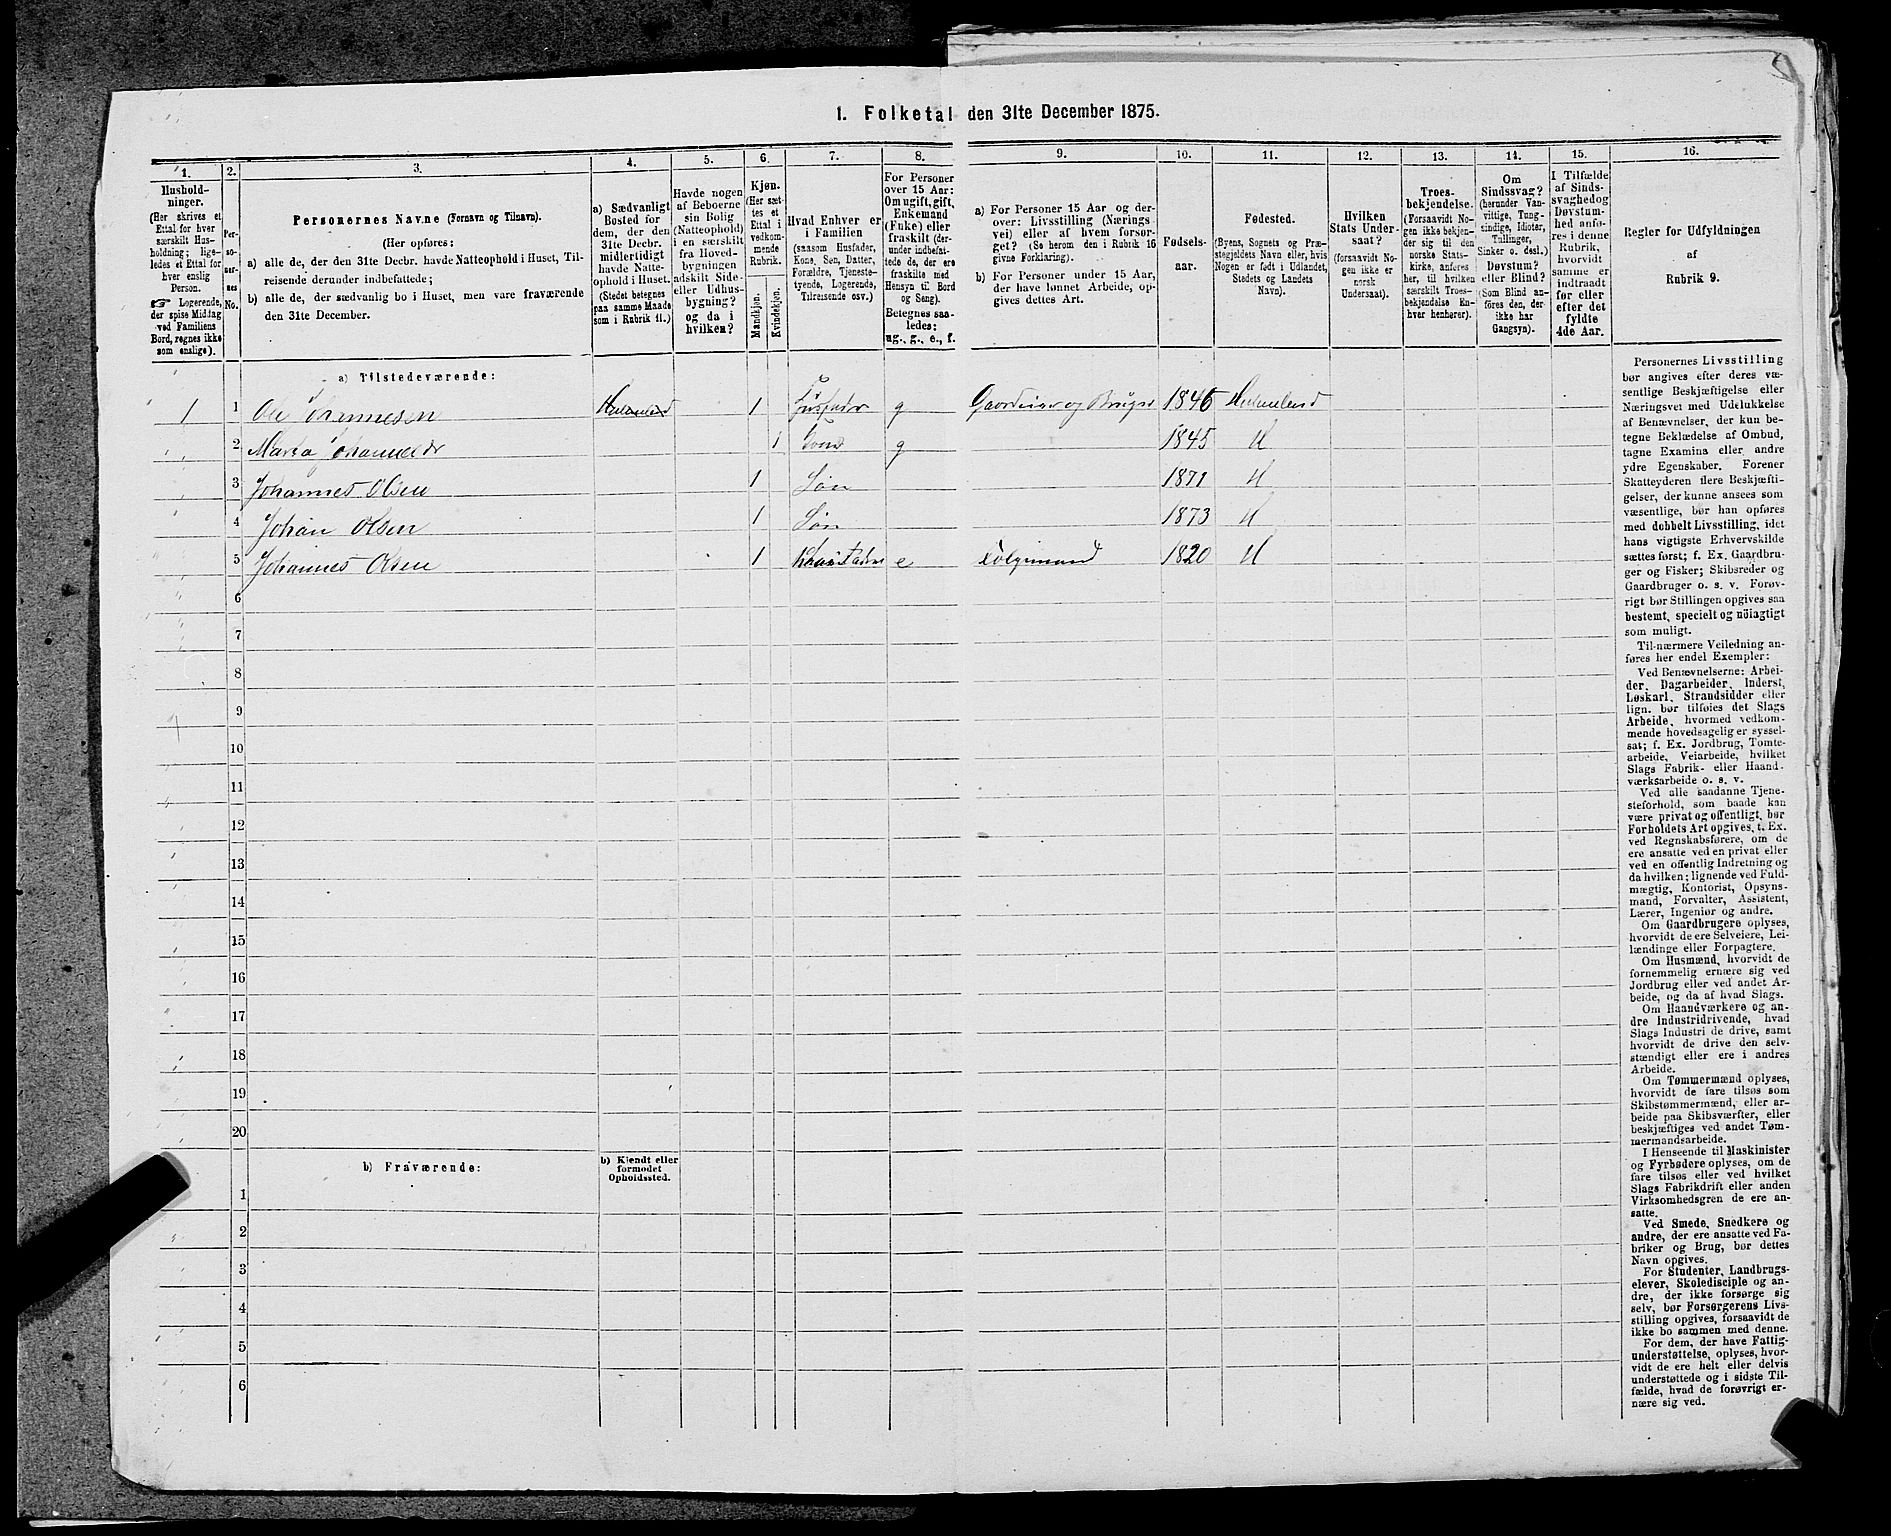 1. Folketal den 31te December 1875.
1.
2.
3.
4.
5.
6.
7.
8.
9.
10.
11.
12.
13.
14.
15.
16.
Hushold-
ninger.
(Her skrives et
Ettal for hver
særskilt Hus-
holdning; lige-
ledes et Ettal for
hver enslig
Person.
☞ Logerende,
der spise Middag
ved Familiens
Bord, regnes ikke
som enslige).
Per-
so-
ner-
nes
No.
Personernes Navne (Fornavn og Tilnavn).
(Her opføres:
a) alle de, der den 31te Decbr. havde Natteophold i Huset, Til-
reisende derunder indbefattede;
b) alle de, der sædvanlig bo i Huset, men vare fraværende
den 31te December.
a) Sædvanligt
Bosted for
dem, der den
31te Decbr.
midlertidigt
havde Natte-
ophold i Huset.
(Stedet betegnes
paa samme Maade
som i Rubrik 11.)
Havde nogen
af Beboerne
sin Bolig
(Natteophold)
i en særskilt
fra Hoved-
bygningen
adskilt Side-
eller Udhus-
bygning?
og da i
hvilken?
Kjøn.
(Her sæt-
tes et
Ettal i
vedkom-
mende
Rubrik.
Mandkjøn.
Kvindekjøn.
Hvad Enhver er
i Familien
(saasom Husfader,
Kone, Søn, Datter,
Forældre, Tjeneste-
tyende, Logerende,
Tilreisende osv.)
For Personer
over 15 Aar:
Om ugift, gift,
Enkemand
(Enke) eller
fraskilt (der-
under indbefat-
tede de, der ere
fraskilte med
Hensyn til Bord
og Seng).
Betegnes saa-
ledes:
ug., g., e., f.
a) For Personer 15 Aar og der-
over: Livsstilling (Nærings-
vei) eller af hvem forsør-
get? (Se herom den i Rubrik 16
givne Forklaring).
b) For Personer under 15 Aar,
der have lønnet Arbeide, op-
gives dettes Art.
Fødsels-
aar.
Fødested.
(Byens, Sognets og Præ-
stegjeldets Navn eller, hvis
Nogen er født i Udlandet,
Stedets og Landets
Navn).
Hvilken
Stats Under-
saat?
(forsaavidt No-
gen ikke er
norsk
Undersaat).
Troes-
bekjendelse.
(Forsaavidt No-
gen ikke bekjen-
der sig til den
norske Stats-
kirke, anføres
her, til hvilken
særskilt Troes-
bekjendelse En-
hver henhører).
Om
Sindssvag?
(herunder Van-
vittige, Tung-
sindige, Idioter,
Tullinger,
Sinker o. desl.)
Døvstum?
eller Blind?
(Som Blind an-
føres den, der
ikke har
Gangsyn).
I Tilfælde
af Sinds-
svaghed og
Døvstum-
hed anfø-
res i denne
Rubrik,
hvorvidt
samme er
indtraadt
før eller
efter det
fyldte
4de Aar.
Regler for Udfyldningen
af
Rubrik 9.
a) Tilstedeværende:
1 1 Ole Johannesen 1 Husfader g Gaardeier og Bruger 1846
2 1 g 1845
3 Johannes Olsen 1 Søn 1871
4 Johan Olsen 1 Søn 1873
5 Johannes Olsen 1 e Følgemand 1820
6
7
8
9
10
11
12
13
14
15
16
17
18
19
20
b) Fraværende:
b) Kjendt eller
formodet
Opholdssted.
1
2
3
4
5
6
Personernes Livsstilling
bør angives efter deres væ-
sentlige Beskjæftigelse eller
Næringsvei med Udelukkelse
af Benævnelser, der kun be-
tegne Beklædelse af Ombud,
tagne Examina eller andre
ydre Egenskaber. Forener
Skatteyderen flere Beskjæfti-
gelser, der kunne ansees som
væsentlige, bør han opføres
med dobbelt Livsstilling, idet
hans vigtigste Erhvervskilde
sættes først; f. Ex. Gaardbru-
ger og Fisker; Skibsreder og
Gaardbruger o. s. v. Forøv-
rigt bør Stillingen opgives saa
bestemt, specielt og nöiagtigt
som muligt.
Til nærmere Veiledning an-
føres her endel Exempler:
Ved Benævnelserne: Arbei-
der, Dagarbeider, Inderst,
Løskarl, Strandsidder eller
lign. bør tilføies det Slags
Arbeide, hvormed vedkom-
mende hovedsagelig er syssel-
sat; f. Ex. Jordbrug, Tomte-
arbeide, Veiarbeide, hvilket
Slags Fabrik- eller Haand-
værksarbeide o. s. v.
Ved alle saadanne Tjene-
steforhold, som baade kan
være privat og offentligt, bør
Forholdets Art opgives, t. Ex.
ved Regnskabsførere, om de
ere ansatte ved en privat eller
ved en offentlig Indretning og
da hvilken; lignende ved Fuld-
mægtig, Kontorist, Opsyns-
mand, Forvalter, Assistent,
Lærer, Ingeniør og andre.
Om Gaardbrugere oplyses,
hvorvidt de ere Selveiere, Lei-
lændinge eller Forpagtere.
Om Husmænd, hvorvidt de
fornemmelig ernære sig ved
Jordbrug eller ved andet Ar-
beide, og da af hvad Slags.
Om Haandværkere og an-
dre Industridrivende, hvad
Slags Industri de drive, samt
hvorvidt de drive den selv-
stændigt eller ere i andres
Arbeide.
Om Tømmermænd oplyses,
hvorvidt de fare tilsøs som
Skibstømmermænd, eller ar-
beide paa Skibsværfter, eller
beskjæftiges ved andet Tøm-
mermandsarbeide.
I Henseende til Maskinister
og Fyrbødere oplyses, om de
fare tilsøs eller ved hvilket
Slags Fabrikdrift eller anden
Virksomhedsgren de ere an-
satte.
Ved Smede, Snedkere og
andre, der ere ansatte ved Fa-
briker og Brug, bør dettes
Navn opgives.
For Studenter, Landbrugs-
elever, Skoledisciple og an-
dre, der ikke forsørge sig
selv, bør Forsørgerens Livs-
stilling opgives, forsaavidt de
ikke bo sammen med denne.
For dem, der have Fattig-
understøttelse, oplyses, hvor-
vidt de ere helt eller delvis
understøttede og i sidste Til-
fælde, hvad de forøvrigt er-
nære sig ved.